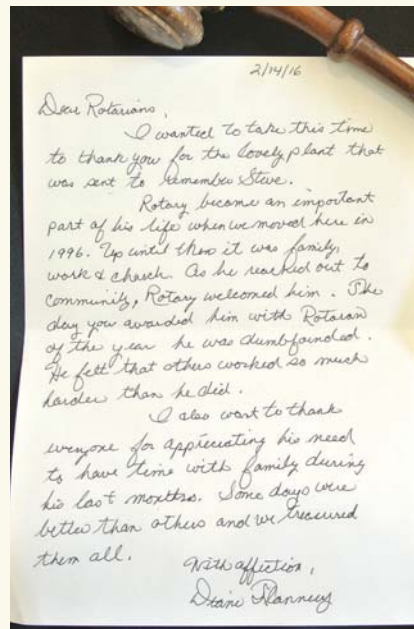 2/14/16
Dear Rotarians,
I wanted to take this time
to thank you for the lovely plant that
was sent to remember Steve.
Rotary became an important
part of his life when we moved here in
1996. Up until then it was family,
work & church. As he reached out to
community, Rotary welcomed him. The
day you awarded him with Rotaran
of the year he was dumbfounded.
He felt that others worked so much
harder than he did.
I also want to thank
everyone for appreciating his need
to have time with family during
his last months. Some days were
better than others and we treasured
them all.
With affection,
Diane Flannery